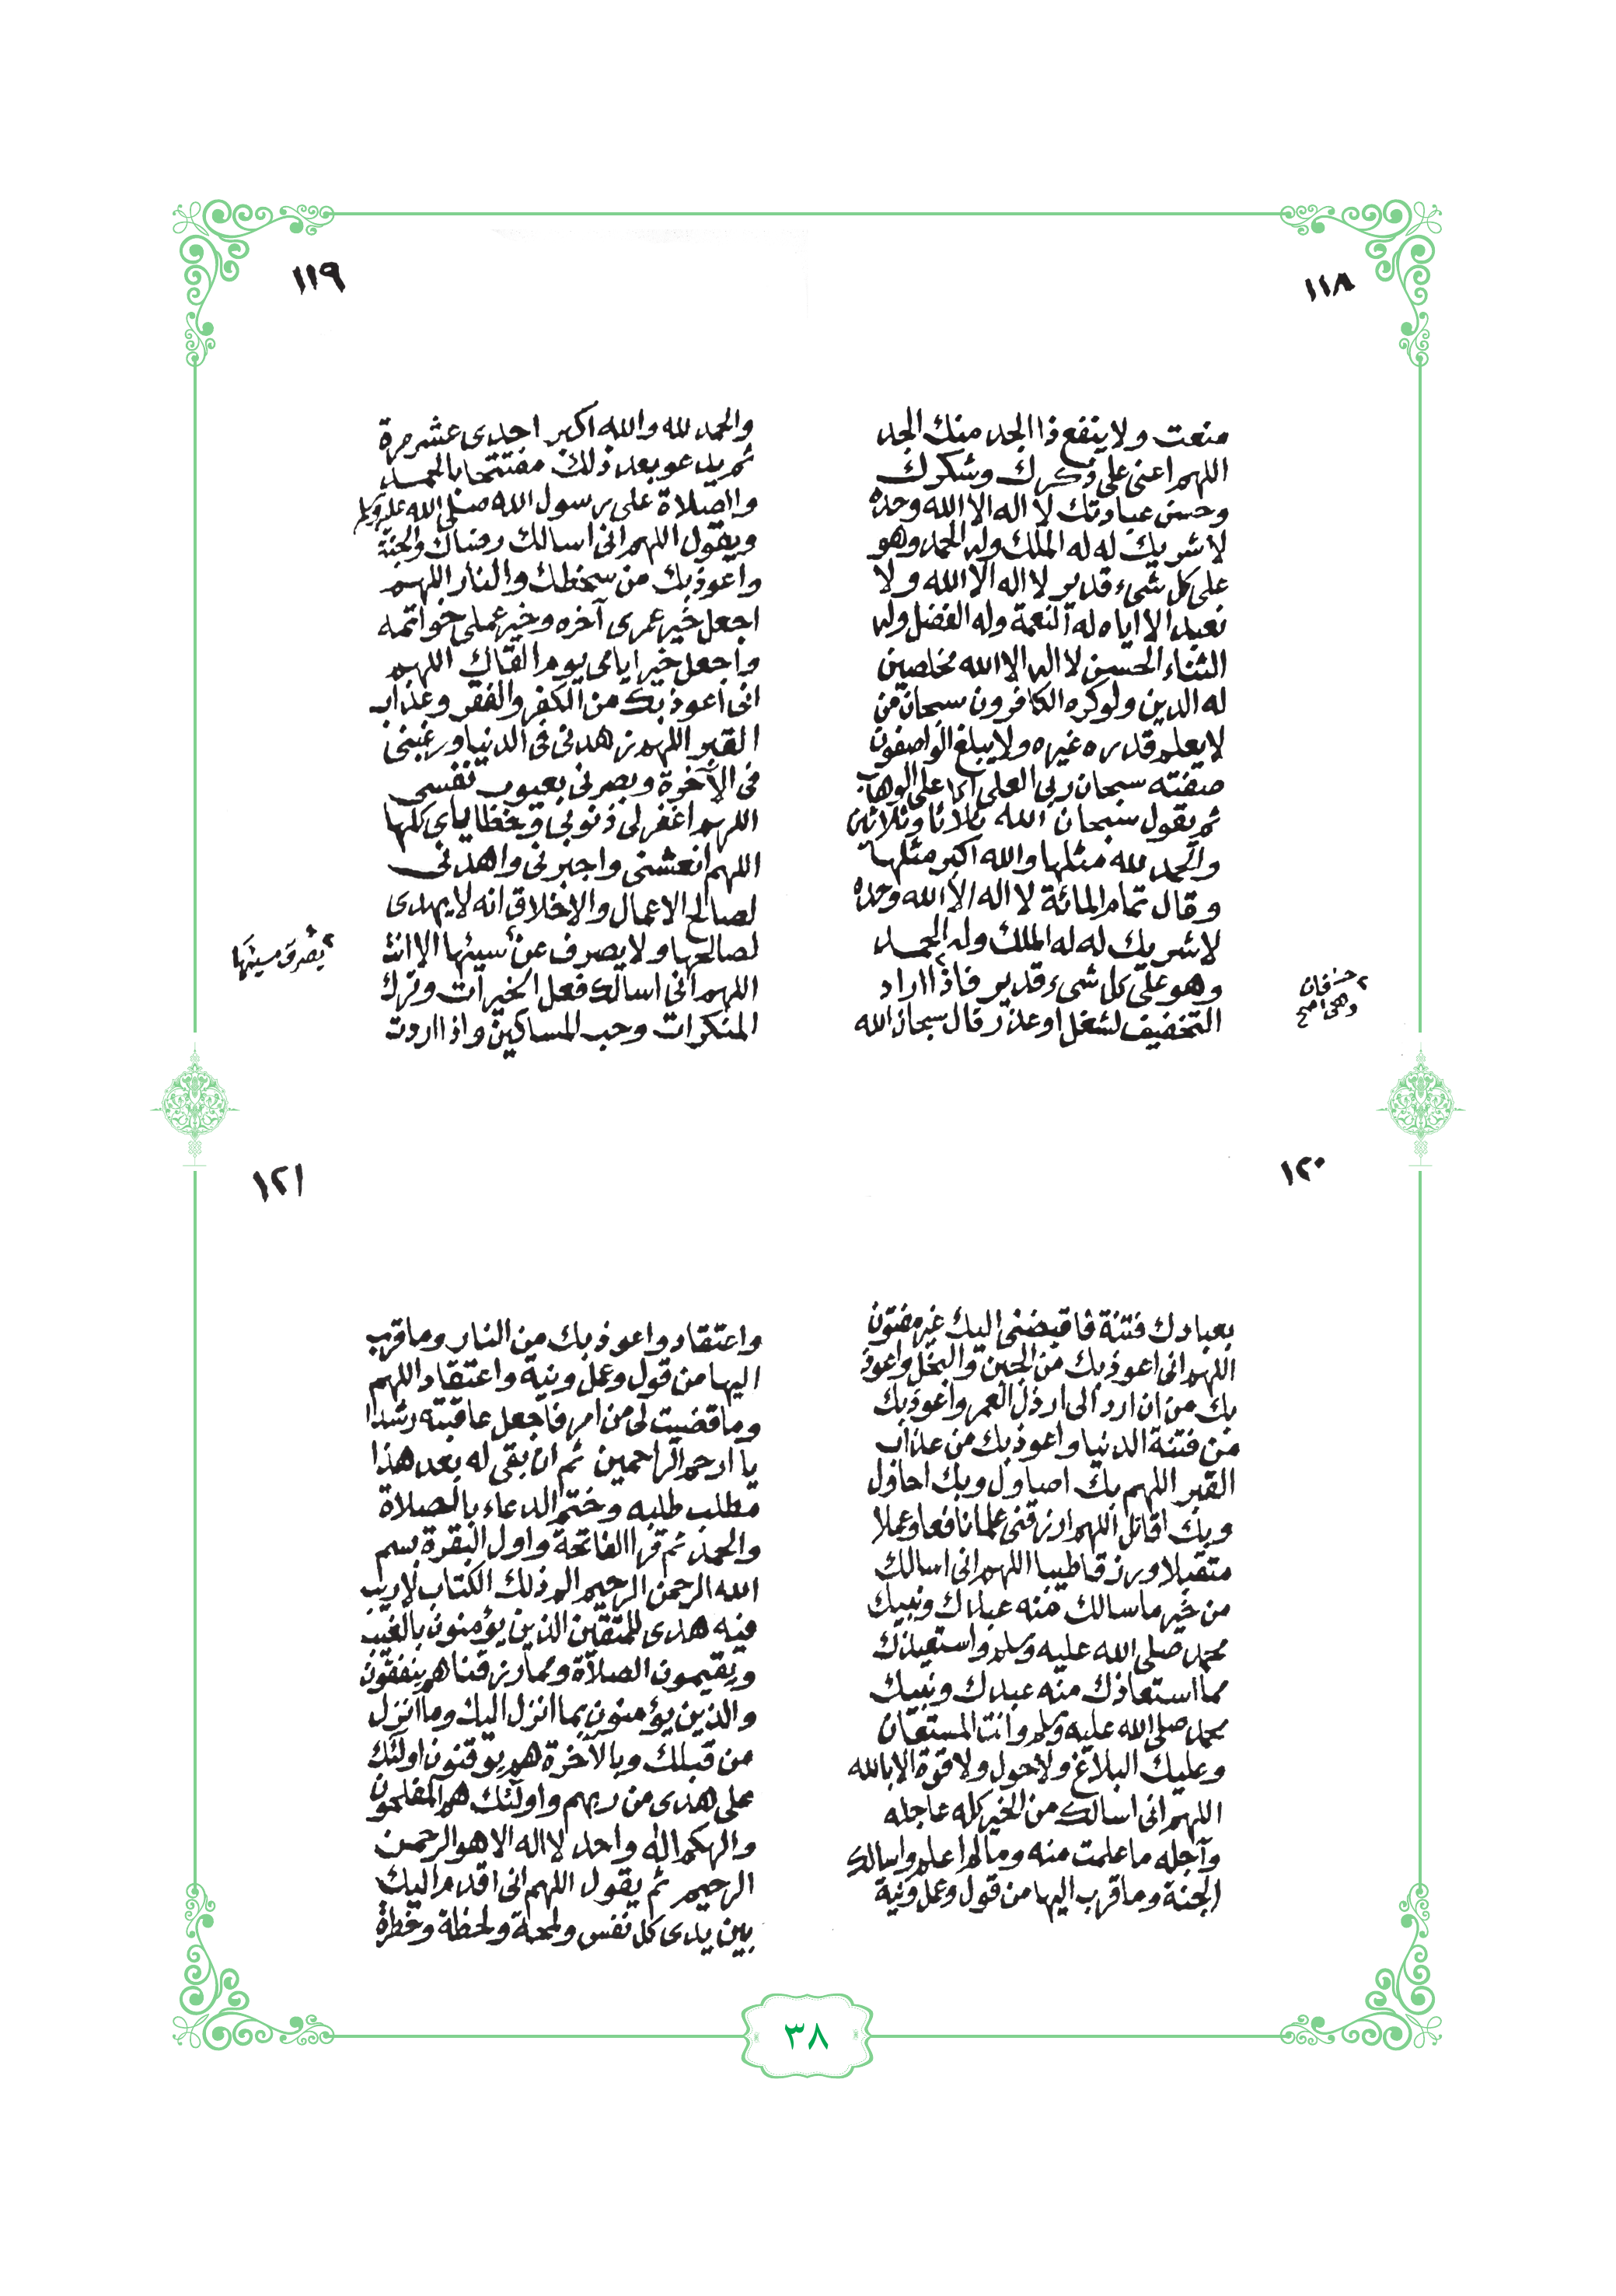 ١١٨
منعت ولا ينفع ذا الجد منك الجد
اللهم اعنى على ذكرك وشكرك
وحسن عبادتك لا اله الا الله وحده
لا شريك له له الملك وله الحمد وهو
على كل شىء قدير لا اله الا الله ولا
نعبد الا اياه له النعمة وله الفضل وله
الثناء الحسن لا اله الا الله مخلصين
له الدين ولو كره الكافرون سبحان من
لا يعلم قدره غيره ولا يبلغ الواصفون
صفته سبحان ربى العلى الاعلى الوهاب
ثم يقول سبحان الله ثلاثا وثلاثين
والحمد لله مثلها والله اكبر مثلها
وقال تمام المائة لا اله الا الله وحده
لا شريك له له الملك وله الحمد
وهو على كل شىء قدير فاذا اراد
التخفيف لشغل او عذر قال سبحان الله
فان
١١٩
والحمد لله والله اكبر احدى عشر مرة
ثم يدعو بعد ذلك مفتتحا بالحمد
والصلاة على رسول الله صلى الله عليه وسلم
ويقول اللهم انى اسالك رضاك والجنة
واعوذ بك من سخطك والنار اللهم
اجعل خير عمرى آخره وخير عملى خواتمه
واجعل خير ايامى يوم القاك اللهم
انى اعوذ بك من الكفر والفقر وعذاب
القبر اللهم زهدنى فى الدنيا ورغبنى
فى الآخرة وبصرنى بعيوب نفسى
اللهم اغفر لى ذنوبى وخطاياى كلها
اللهم انعشنى واجبرنى واهدنى
لصالح الاعمال والاخلاق انه لا يهدى
لصالحها ولا يصرف عن سيئها الا انت
اللهم انى اسالك فعل الخيرات وترك
المنكرات وحب المساكين واذا اردت
١٢٠
بعبادك فتنة فاقبضنى اليك غير مفتون
اللهم انى اعوذ بك من الجبن والبخل واعوذ
بك من ان ارد الى ارذل العمر واعوذ بك
من فتنة الدنيا واعوذ بك من عذاب
القبر اللهم بك اصاول وبك احاول
وبك اقاتل اللهم ارزقنى علما نافعا وعملا
متقبلا ورزقا طيبا اللهم انى اسالك
من خير ما سالك منه عبدك ونبيك
محمد صلى الله عليه وسلم واستعيذك
مما استعاذك منه عبدك ونبيك
محمد صلى الله عليه وسلم وانت المستعان
وعليك البلاغ ولا حول ولا قوة الا بالله
اللهم انى اسالك من الخير كله عاجله
وآجله ما علمت منه وما لم اعلم واسالك
الجنة وما قرب اليها من قول وعمل ونية
١٢١
واعتقاد واعوذ بك من النار وما قرب
اليها من قول وعمل ونية واعتقاد اللهم
وما قضيت لى من امر فاجعل عاقبته رشدا
يا ارحم الراحمين ثم ان بقى له بعد هذا
مطلب طلبه وختم الدعاء بالصلاة
والحمد ثم قرا الفاتحة واول البقرة بسم
الله الرحمن الرحيم الم ذلك الكتاب لا ريب
فيه هدى للمتقين الذين يؤمنون بالغيب
ويقيمون الصلاة ومما رزقناهم ينفقون
والذين يؤمنون بما انزل اليك وما انزل
من قبلك وبالآخرة هم يوقنون اولئك
على هدى من ربهم واولئك هم المفلحون
والهكم اله واحد لا اله الا هو الرحمن
الرحيم ثم يقول اللهم انى اقدم اليك
بين يدى كل نفس ولمحة ولحظة وخطرة
٣٨